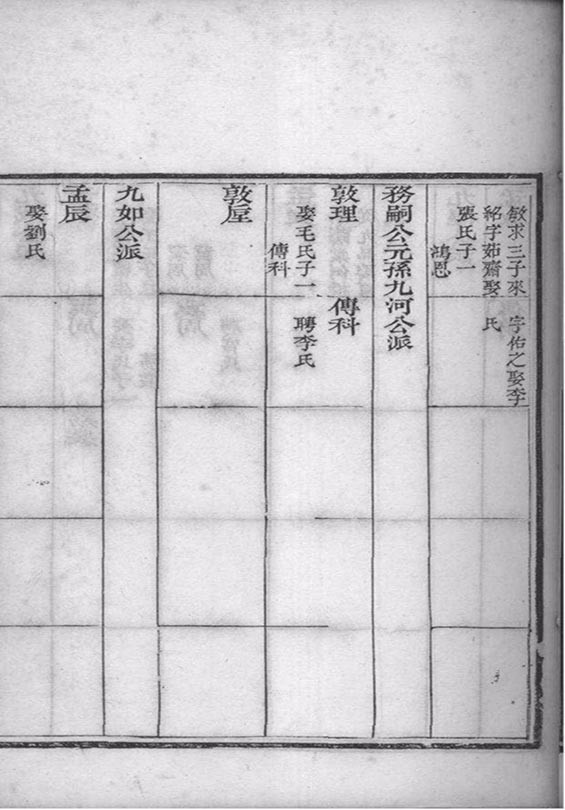 敏求三子來
紹字茹齋娶
張氏子一
鴻恩
字佑之娶李
氏
務嗣公元孫九河公派
敦理
娶毛氏子一
傳科
傳科
聘李氏
敦屋
九如公派
孟辰
娶劉氏